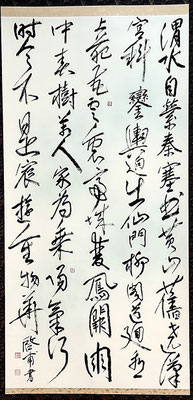 渭水自縈秦塞曲黃山舊遶漢
宮斜鑾輿迥出仙門柳閣道迴看
上苑花雲裏帝城雙鳳闕雨
中春樹萬人家為乘陽氣行
時令不是宸遊重物華
書